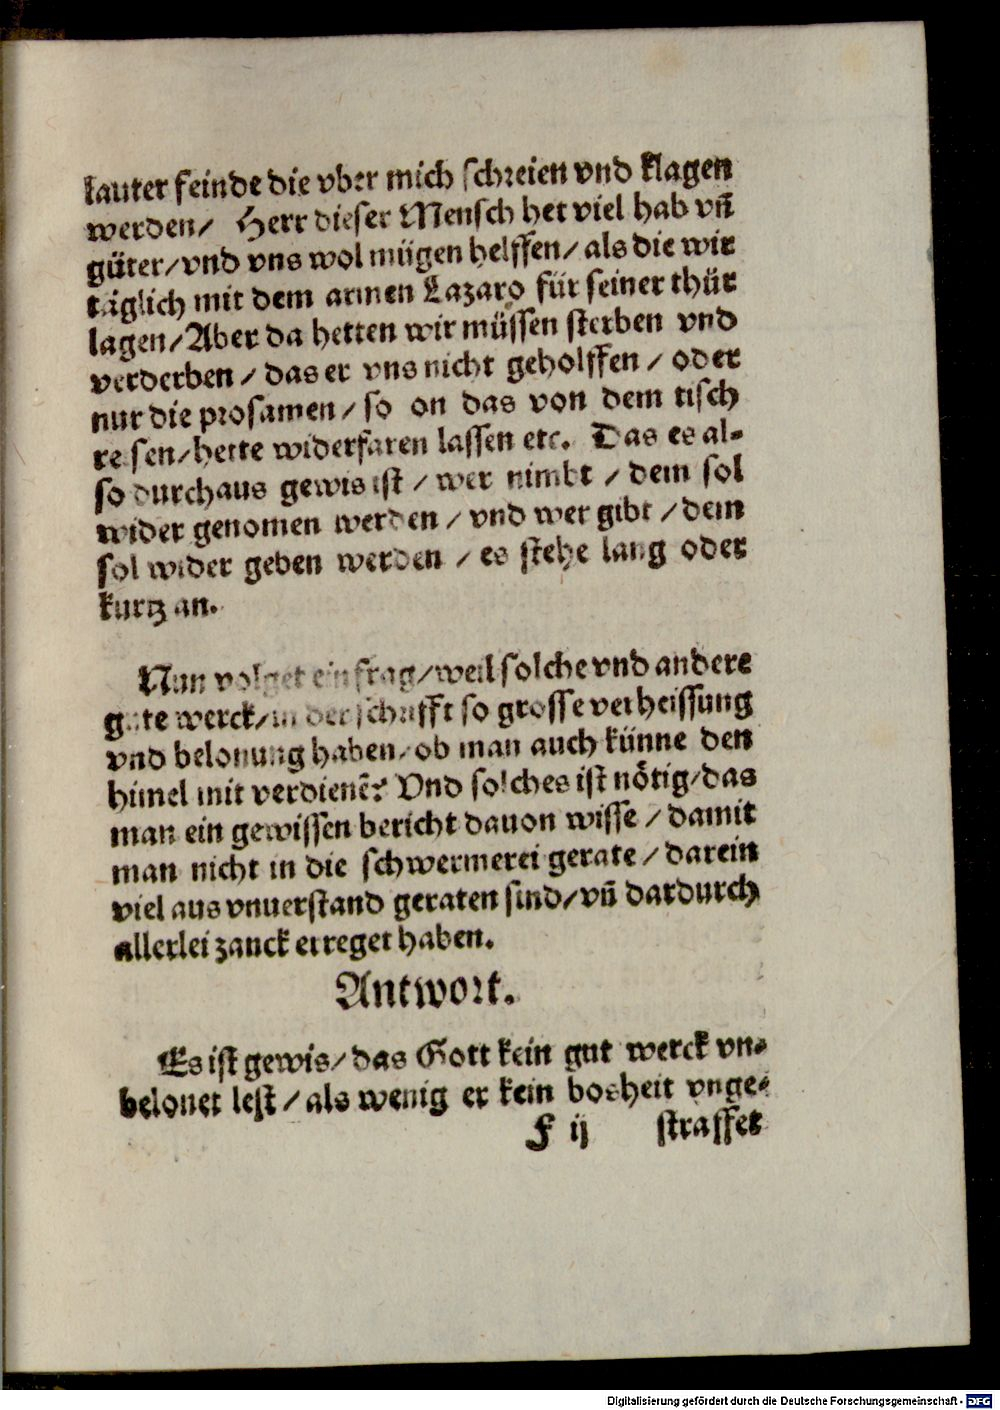 lauter feinde die vber mich schreien vnd klagen
werden/ Herr dieser Mensch het viel hab vñ
güter/vnd vns wol mügen helffen/als die wir
täglich mit dem armen Lazaro für seiner thür
lagen/Aber da hetten wir müssen sterben vnd
verderben/das er vns nicht geholffen/oder
nur die prosamen/so on das von dem tisch
reisen/hette widerfaren lassen etc. Das es al-
so durchaus gewis ist/wer nimbt/dem sol
wider genomen werden/vnd wer gibt/dem
sol wider geben werden/es stehe lang oder
kurtz an.
Nun volget ein frag/weil solche vnd andere
gute werck/in der schrifft so grosse verheissung
vnd belonung haben/ob man auch künne den
himel mit verdienẽ? Vnd solches ist nötig/das
man ein gewissen bericht dauon wisse/damit
man nicht in die schwermerei gerate/darein
viel aus vnuerstand geraten sind/vñ dardurch
allerlei zanck erreget haben.
Antwort.
Es ist gewis/das Gott kein gut werck vn-
belonet lest/als wenig er kein bosheit vnge-
F ij straffet
Digitalisierung gefördert durch die Deutsche Forschungsgemeinschaft - DFG